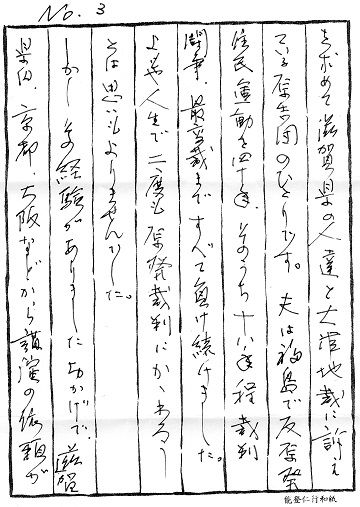 No. 3
を求めて滋賀県の人達と大津地裁に訴え
ている原告団のひとりです。夫は福島で反原発
住民運動を四十年、そのうち十八年程裁判
闘争、最高裁まですべて負け続けました。
よもや人生で二度も原発裁判にかかわろう
とは思いもよりませんでした。
しかしその経験がありましたおかげで、滋賀
県内、京都、大阪などから講演の依頼が
能登仁行和紙